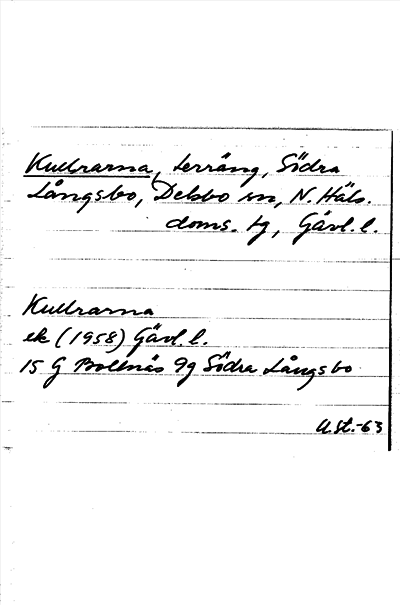 Kullrarna, terräng, Södra
Långsbo, Delsbo sn, N. Häls.
doms. tg, Gävl. l.
Kullrarna
ek (1958) Gävl. l.
15 G Bollnäs 9g Södra Långsbo
U.St.-63